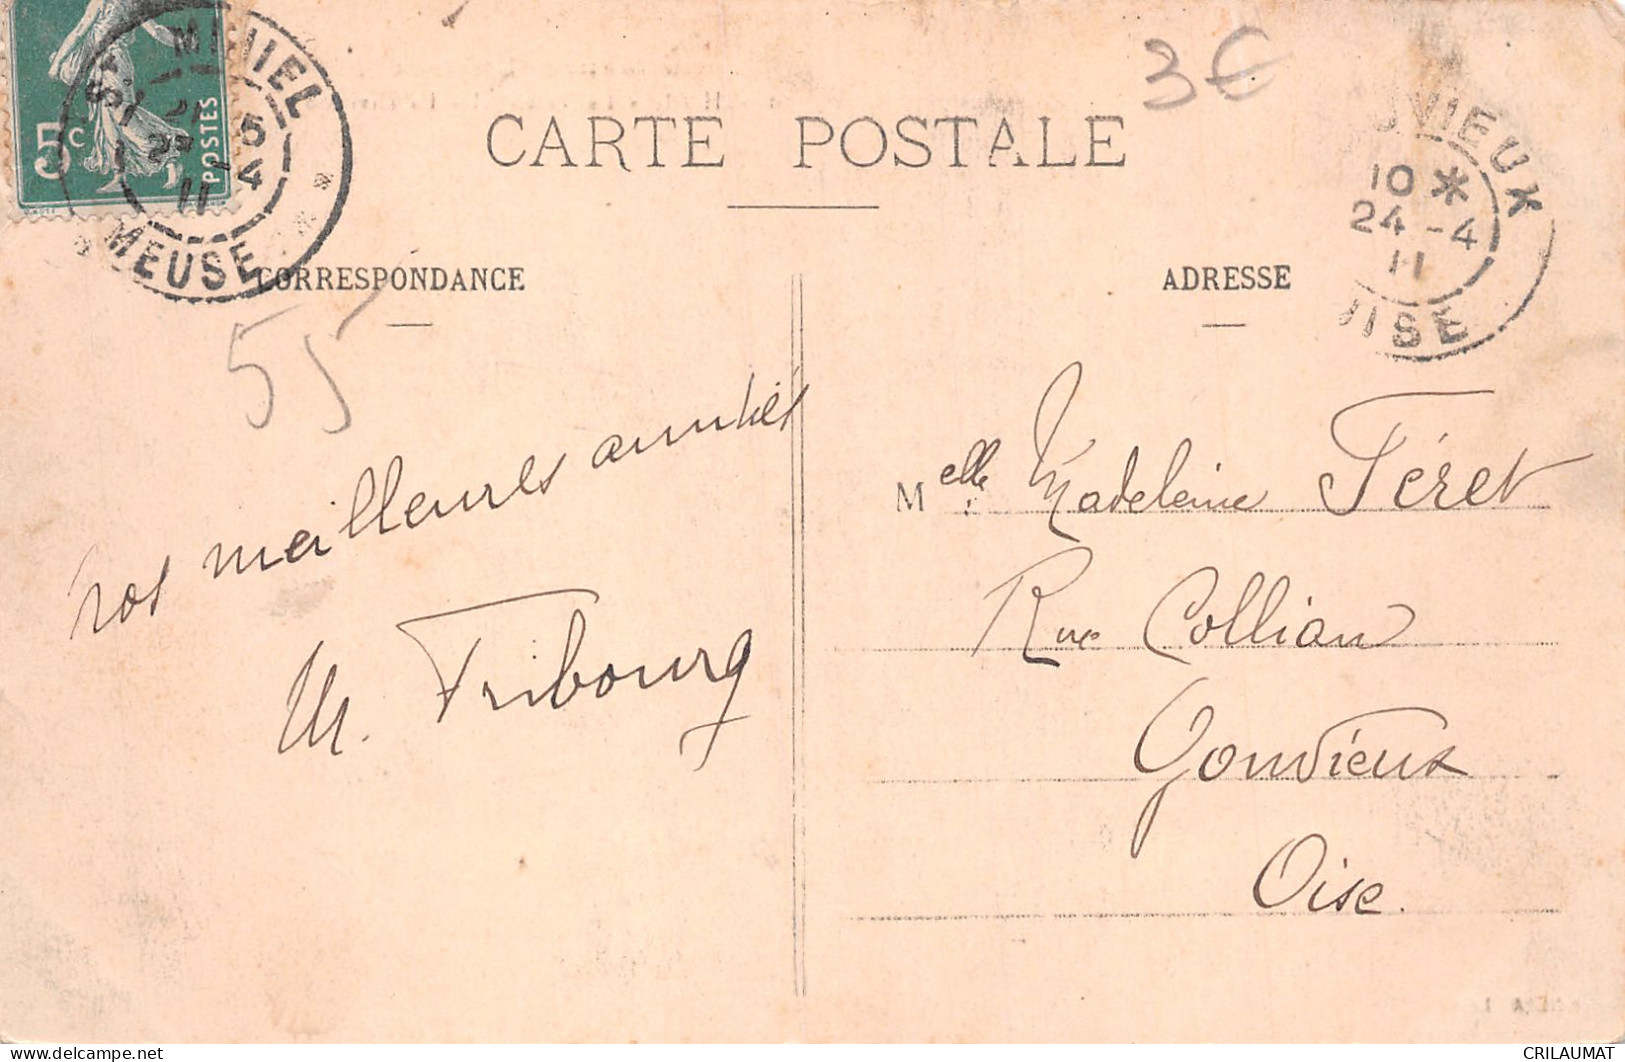 5c
POSTES
ST MIHIEL
21 5
23 -4
11
MEUSE
3€
CARTE POSTALE
UVIEUX
10 *
24 -4
11
OISE
CORRESPONDANCE
ADRESSE
55
nos meilleures amitiés
M. Fribourg
Melle Madeleine Féret
Rue Collian
Gouvieux
Oise.
CRILAUMAT